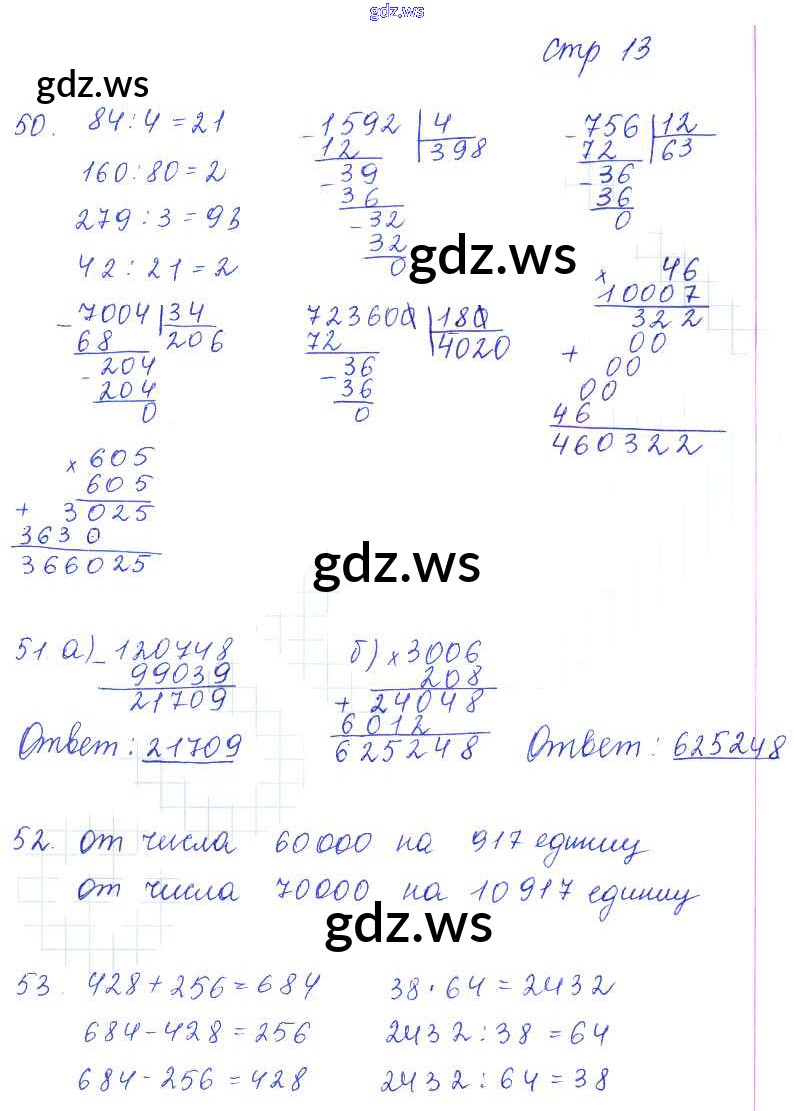 gdz.ws
стр 13
gdz.ws
50. 84:4=21
160:80=2
279:3=93
42:21=2
-1592 | 4
12 398
-39
36
-32
32
0
-756 | 12
72 63
-36
36
0
gdz.ws
-7004 | 34
68 206
-204
204
0
723600 | 180
72 4020
-36
36
0
×46
10007
322
+ 00
00
00
46
460322
×605
605
+ 3025
3630
366025
gdz.ws
51. а) -120748
99039
21709
Ответ: 21709
б) ×3006
208
+24048
6012
625248
Ответ: 625248
52. от числа 60000 на 917 единиц
от числа 70000 на 10917 единиц
gdz.ws
53. 428+256=684 38·64=2432
684-428=256 2432:38=64
684-256=428 2432:64=38